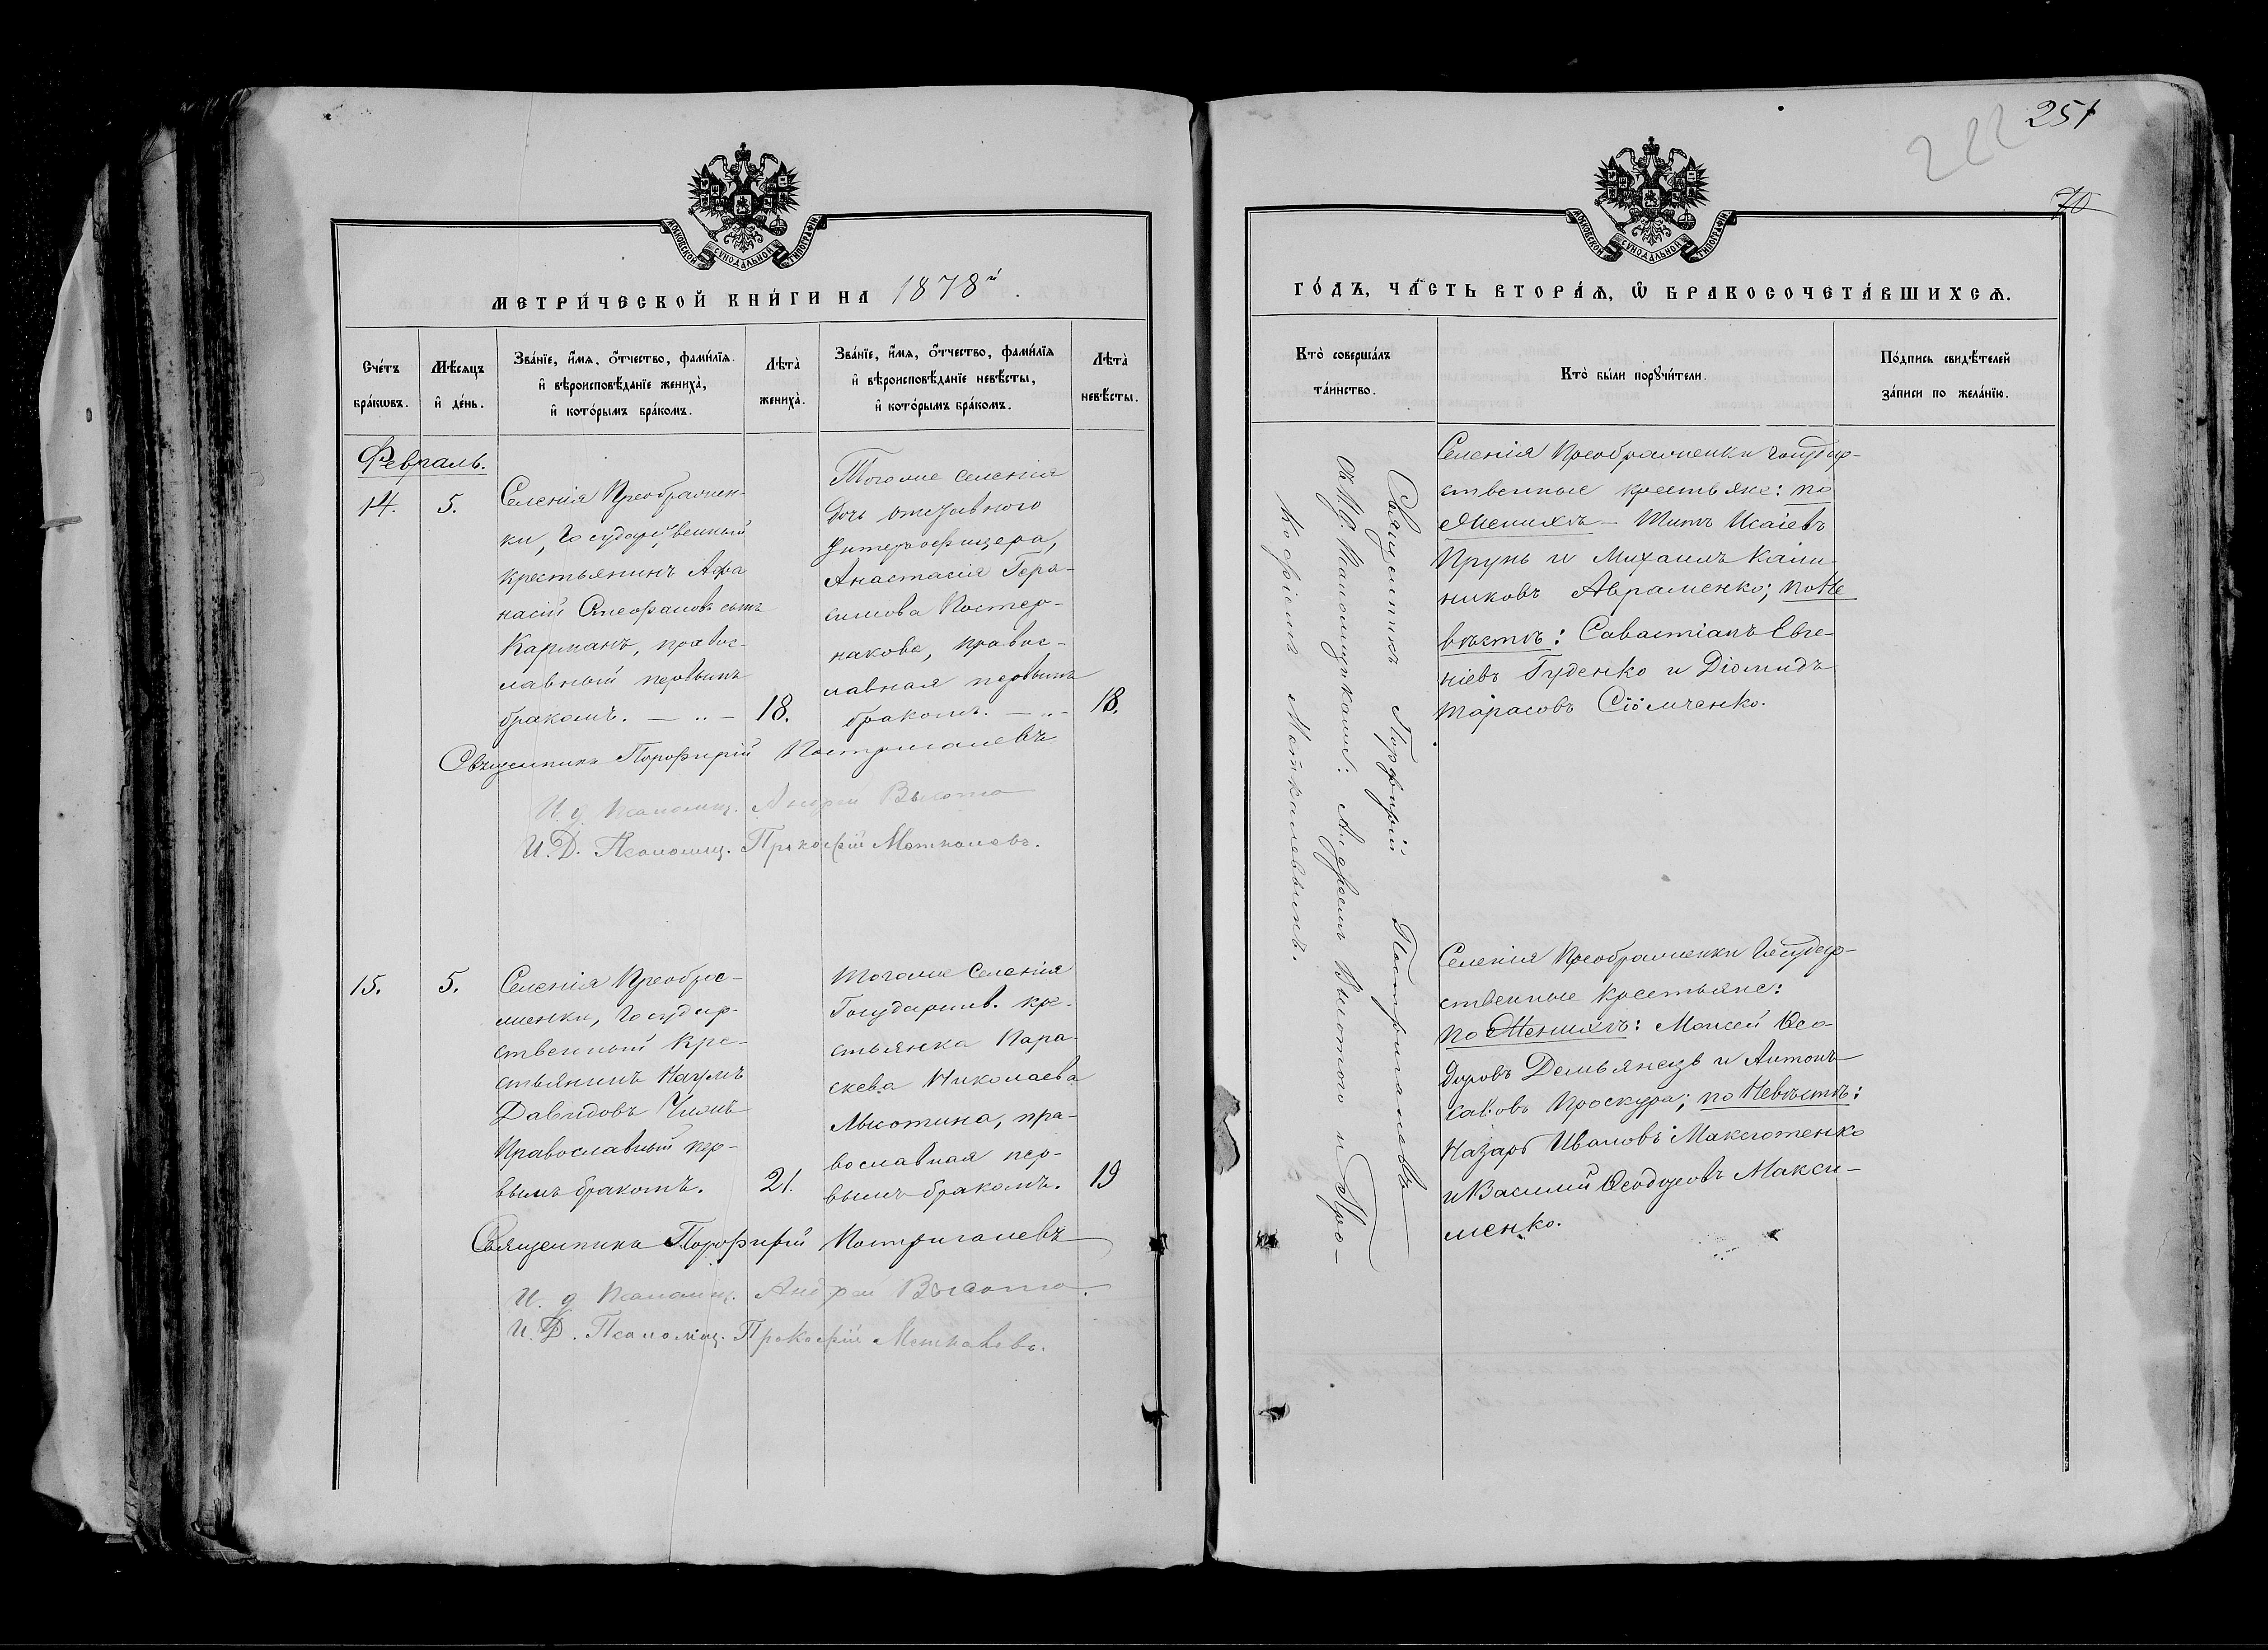 251
222
70
МОСКОВСКОЙ СѴНОДАЛЬНОЙ ТИПОГРАФІИ
МЕТРИ́ЧЕСКОЙ КНИ́ГИ НА 1878й.
Сче́тъ бра́кωвъ.
Мѣ́сяцъ и҆ де́нь.
Зва́нїе, и҆́мя, ѻ҆́тчество, фами́лїя
и҆ вѣроисповѣ́данїе жениха̀,
и҆ кото́рымъ бра́комъ.
Лѣта̀ жениха̀.
Зва́нїе, и҆́мя, ѻ҆́тчество, фами́лїя
и҆ вѣроисповѣ́данїе невѣ́сты,
и҆ кото́рымъ бра́комъ.
Лѣта̀ невѣ́сты.
Февраль.
14.
5.
Селенія Преображен-
ки, Государственный
крестьянинъ Афа
насій Ѳеофановъ сынъ
Карманъ, правос-
лавный первымъ
бракомъ. — „ —
18.
Тогоже селенія
дочь отставного
Унтерофицера,
Анастасія Гера-
симова Постер-
накова, правос-
лавная первымъ
бракомъ. — „ -
18.
Священникъ Порфирій Костригалевъ
И. д. Псаломщ. Андрей Высота
И. Д. Псаломщ. Прокофій Моткалевъ.
15.
5.
Селенія Преобра-
женки, Государ-
ственный кре-
стьянинъ Наумъ
Давидовъ
Православный пер-
вымъ бракомъ.
21.
Тогоже Селенія
Государств. кре-
стьянка Пара-
скева Николаева
пра-
вославная пер-
вымъ бракомъ.
19
Священникъ Порфирій Костригалевъ
И. д Псаломщ. Андрей Высота.
И. Д. Псаломщ. Прокофій Моткалевъ.
МОСКОВСКОЙ СѴНОДАЛЬНОЙ ТИПОГРАФІИ
ГО́ДЪ, ЧА́СТЬ ВТОРА́Ѧ, Ѽ БРАКОСОЧЕТА́ВШИХСѦ.
Кто̀ соверша́лъ
та́инство.
Кто̀ бы́ли порꙋчи́тели.
По́дпись свидѣ́телей
за́писи по жела́нїю.
Священникъ Порфирій Костригалевъ
Съ И. д. Псаломщиками: Андреемъ Высотою и Про-
кофіемъ Моткалевымъ.
Селенія Преображенки Государ-
ственные крестьяне: по
Женихѣ — Титъ Исаіевъ
Прунь и Михаилъ Калин-
никовъ Авраменко; по Не
вѣстѣ: Савастіанъ Евге-
ніевъ Гуденко и Діомидъ
Тарасовъ
Селенія Преображенки Государ-
ственные крестьяне:
по Женихѣ: Моисей Ѳео-
доровъ Демьянецъ и Антонъ
Проскура; по Невѣстѣ:
Назаръ Ивановъ
и Василий Ѳеодоровъ Макси-
менко.